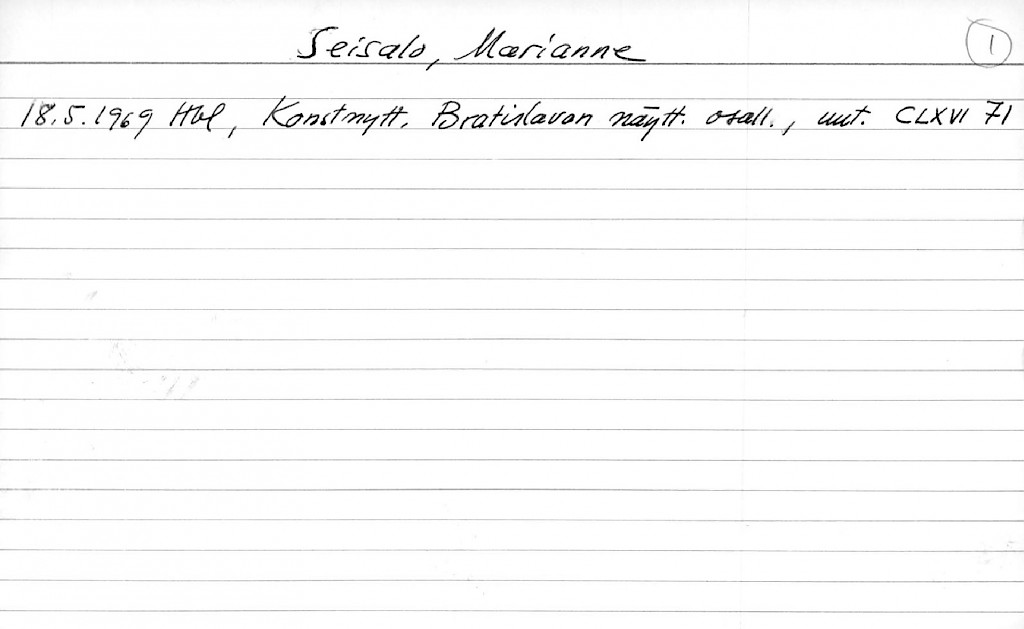 Seisalo, Marianne 1
18.5.1969 Hbl, Konstnytt. Bratislavan näytt. osall., uut. CLXVI 71